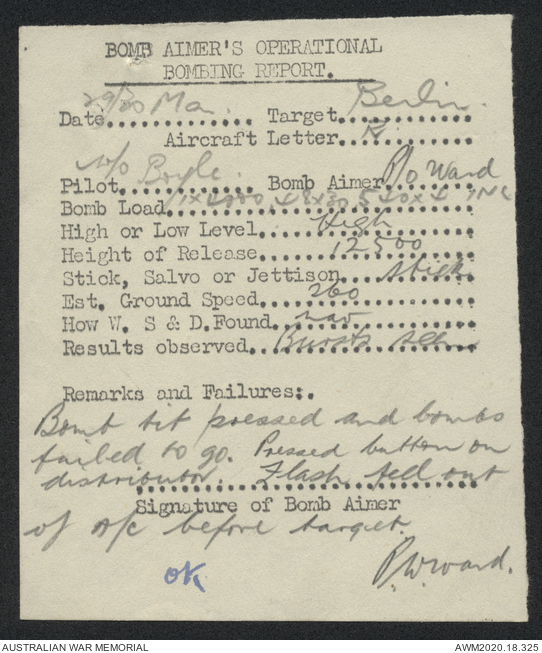 BOMB AIMER'S OPERATIONAL
BOMBING REPORT.
Date 29/30 Mar. Target Berlin.
Aircraft Letter
Pilot W/o Boyle. Bomb Aimer P/o Ward
Bomb Load 1 x 4000, 48 x 30, 540 x 4 INC
High or Low Level High
Height of Release 12500
Stick, Salvo or Jettison Stick
Est. Ground Speed 260
How W. S & D. Found nav
Results observed Bursts seen
Remarks and Failures:.
Bomb tit pressed and bombs
failed to go. Pressed button on
distributor. Flash fell out
Signature of Bomb Aimer
of A/c before target.
P.W.Ward.
OK
AUSTRALIAN WAR MEMORIAL AWM2020.18.325